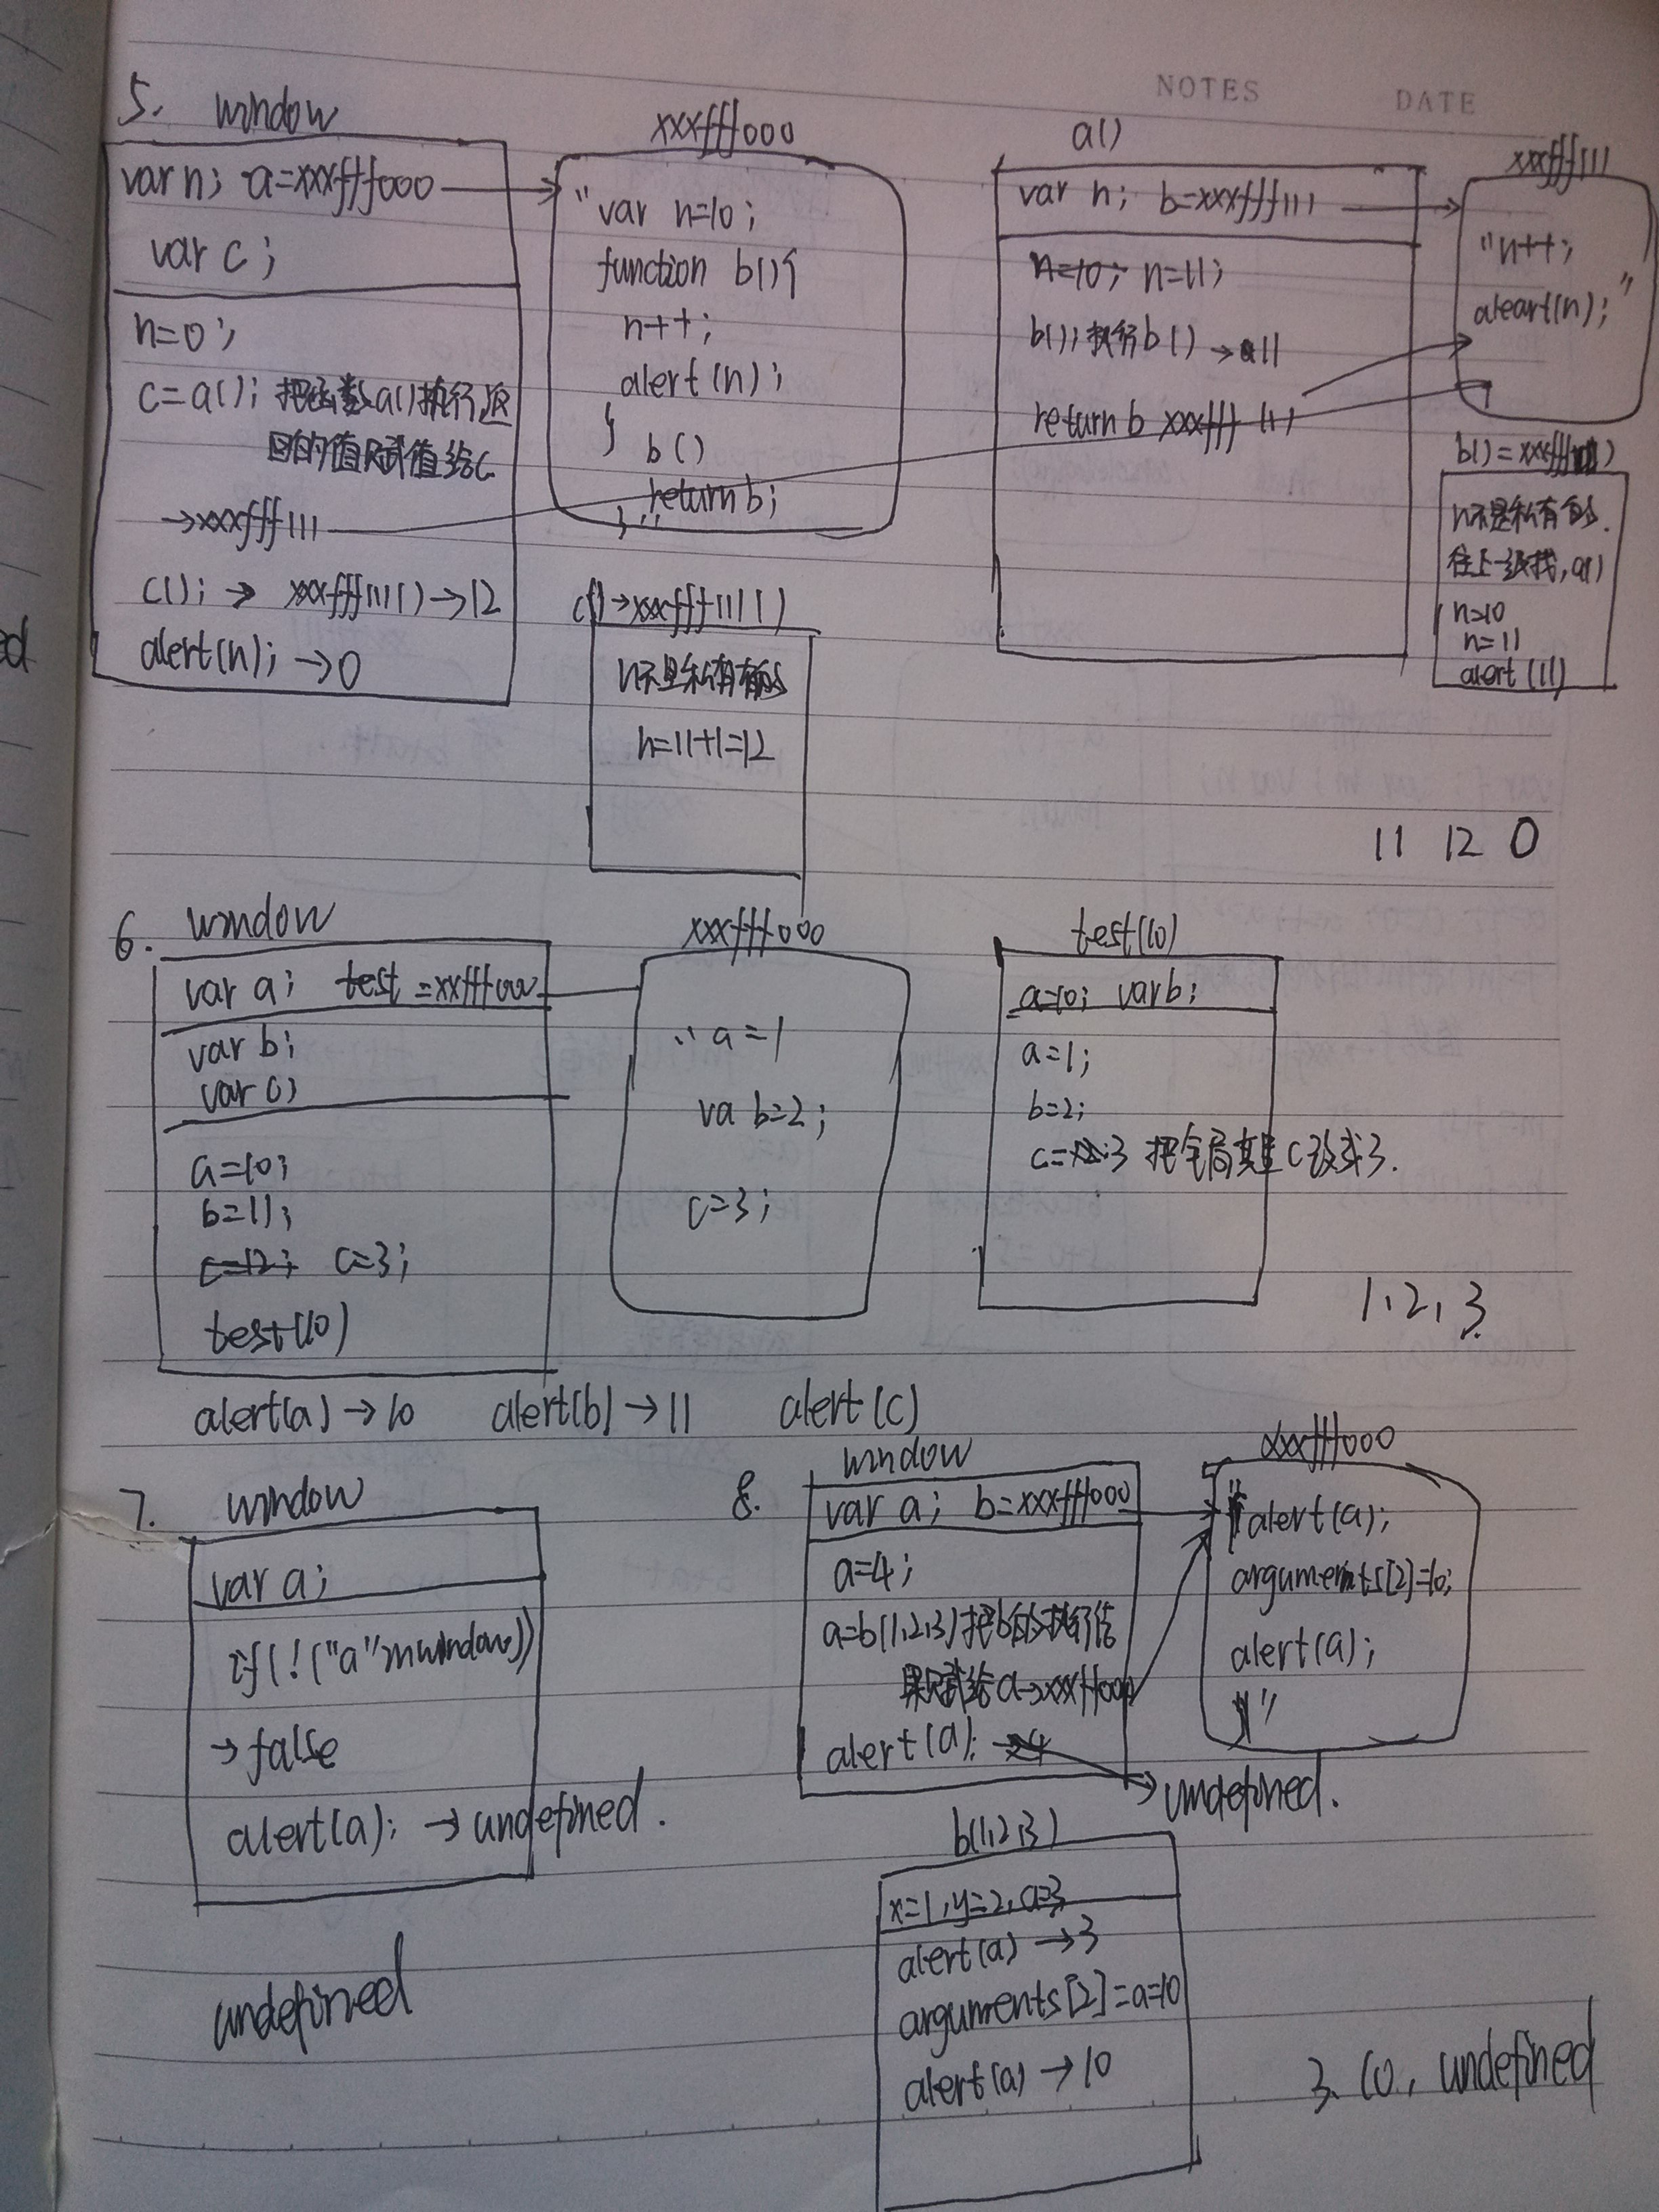 NOTES DATE
5. window
var n; a=xxxfff000
var c;
n=0;
c=a(); 把函数a()执行返
回的值赋值给c
→xxxfff111
c(); → xxxfff111()→12
alert(n); →0
xxxfff000
"var n=10;
function b(){
n++;
alert(n);
} b()
return b;
"
c()→xxxfff111()
n不是私有的
n=11+1=12
a()
var n; b=xxxfff111
n=10; n=11;
b(); 执行b() → 11
return b xxxfff111
xxxfff111
"n++;
aleart(n);"
n不是私有的.
往上一级找, a()
n=10
n=11
alert(11)
11 12 0
6. window
var a; test=xxfff000
var b;
var c;
a=10;
b=11;
c=12; c=3;
test(10)
xxxfff000
"a=1
va b=2;
c=3;
test(10)
a=10; var b;
a=1;
b=2;
c=3 把全局变量c改成3.
1,2,3.
alert(a)→10 alert(b)→11 alert(c)
7. window
var a;
if(!("a"in window))
→false
alert(a); →undefined.
undefined
8. window
var a; b=xxxfff000
a=4;
a=b(1,2,3)把b的执行结
果赋给a→xxxfff000
alert(a); →4
→undefined.
xxxfff000
"alert(a);
arguments[2]=10;
alert(a);
"
b(1,2,3)
x=1,y=2,a=3
alert(a) →3
arguments[2]=a=10
alert(a) →10
3. 10, undefined